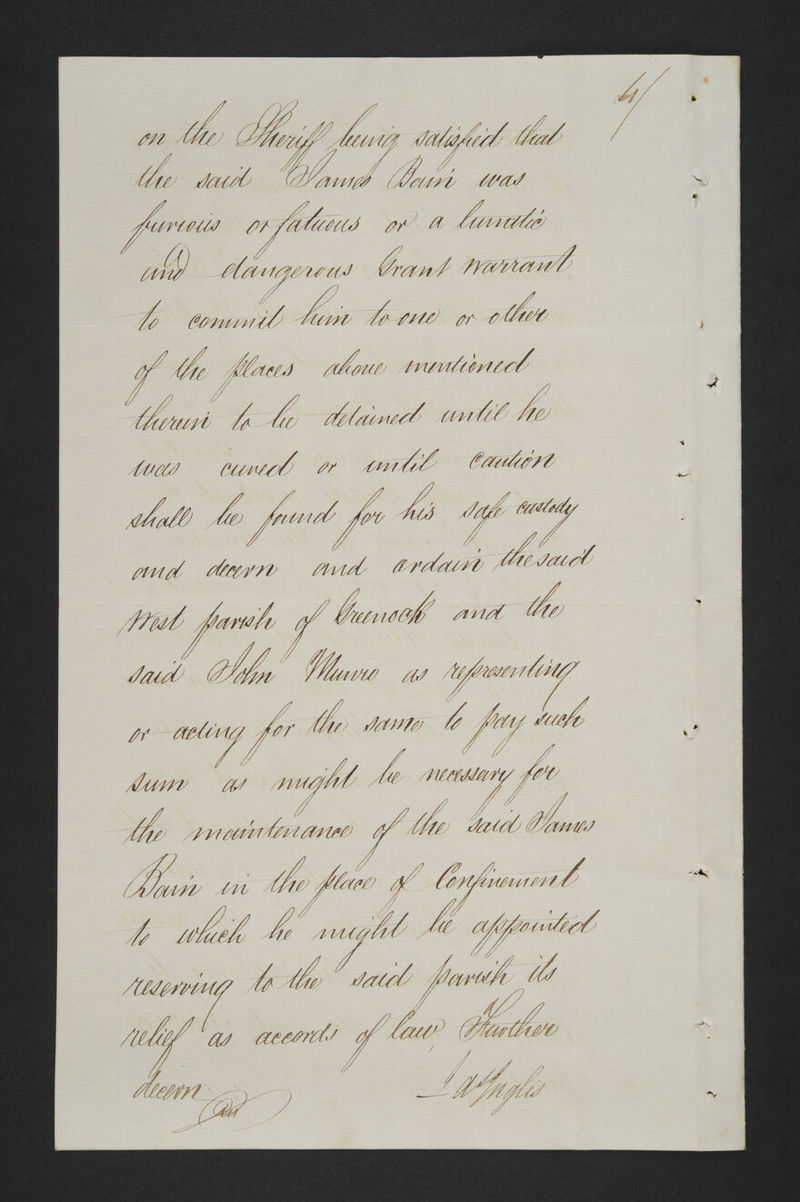 4/
on the Sheriff being satisfied that
the said James Bain was
furious or fatuous or a lunatic
and dangerous Grant Warrant
to commit him to one or other
of the places above mentioned
therein to be detained until he
was cured or until caution
shall be found for his safe custody
and decern and ordain the said
West parish of Greenock and the
said John Munro as representing
or acting for the same to pay such
sum as might be necessary for
the maintenance of the said James
Bain in the place of Confinement
to which he might be appointed
reserving to the said parish its
relief as accords of law, Further
decern
Inglis